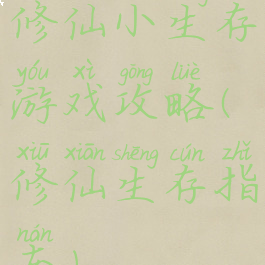 修仙小生存
yóu xì gōng lüè
游戏攻略(
xiū xiān shēng cún zhǐ
修仙生存指
nán
南)